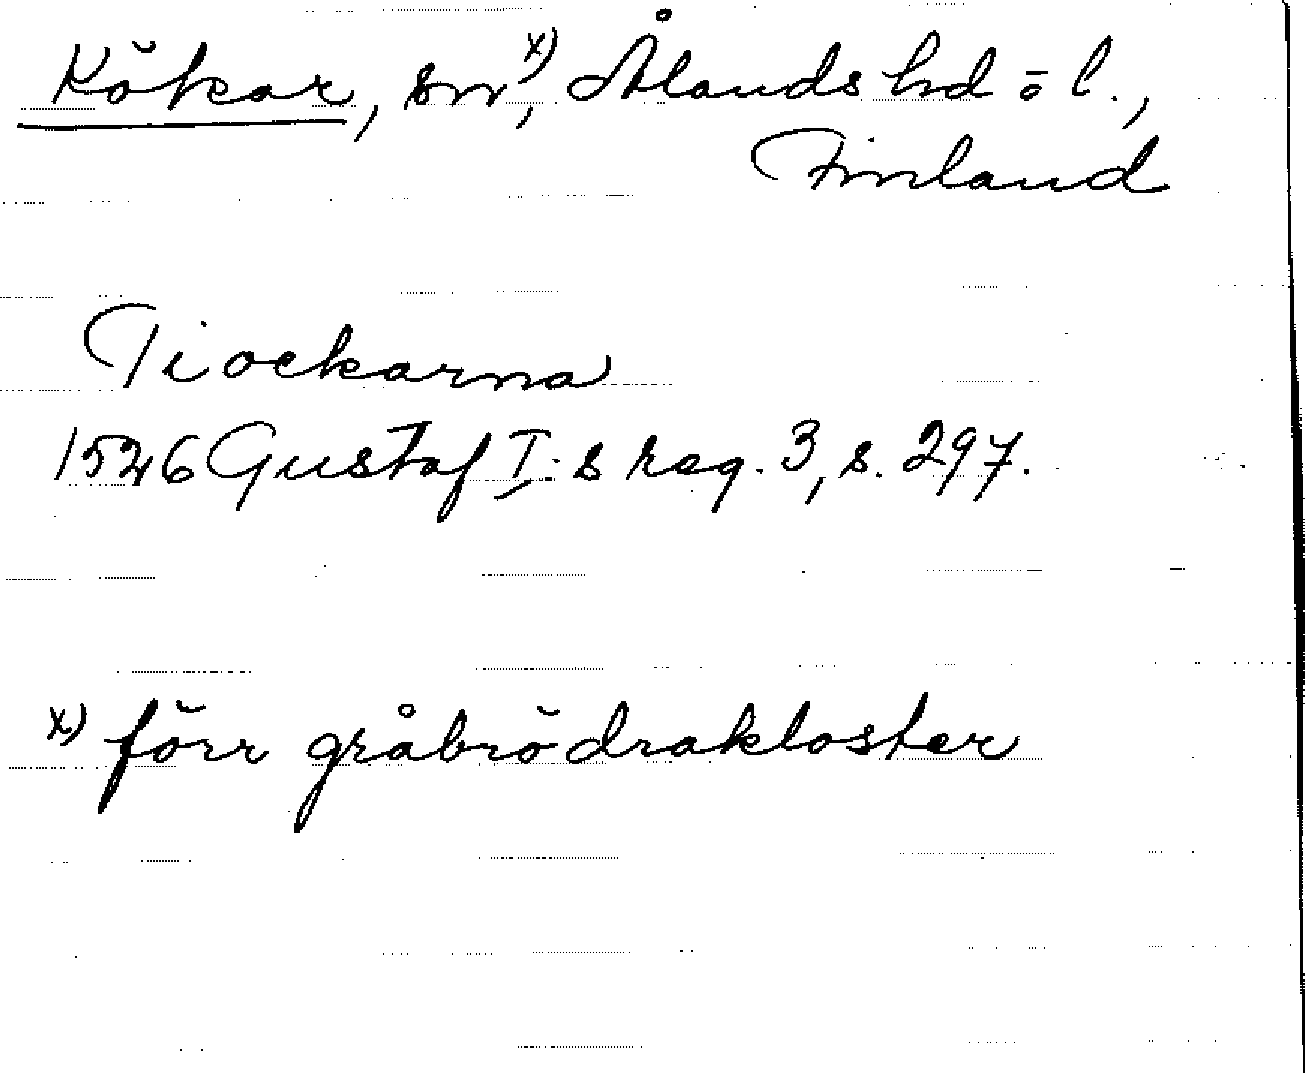 Kökar, sn,x) Ålands hd = l.,
Finland
Tiockarna
1526 Gustaf I:s reg. 3, s. 297.
x) förr gråbrödrakloster